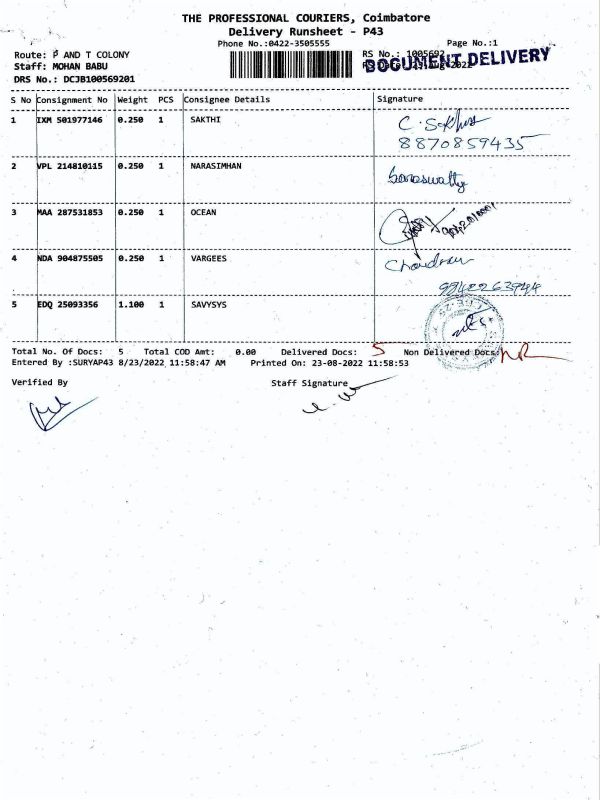 THE PROFESSIONAL COURIERS, Coimbatore
Delivery Runsheet - P43
Phone No.:0422-3505555
Page No.:1
Route: P AND T COLONY
RS No.: 1005692
Staff: MOHAN BABU
DOCUMENT DELIVERY
DRS No.: DCJB100569201
S No Consignment No Weight PCS Consignee Details Signature
1 IXM 501977146 0.250 1 SAKTHI
8870859435
2 VPL 214810115 0.250 1 NARASIMHAN
Saraswathy
3 MAA 287531853 0.250 1 OCEAN
4 NDA 904875505 0.250 1 VARGEES
5 EDQ 25093356 1.100 1 SAVYSYS
Total No. Of Docs: 5 Total COD Amt: 0.00 Delivered Docs: 5 Non Delivered Docs:
Entered By :SURYAP43 8/23/2022 11:58:47 AM Printed On: 23-08-2022 11:58:53
Verified By Staff Signature